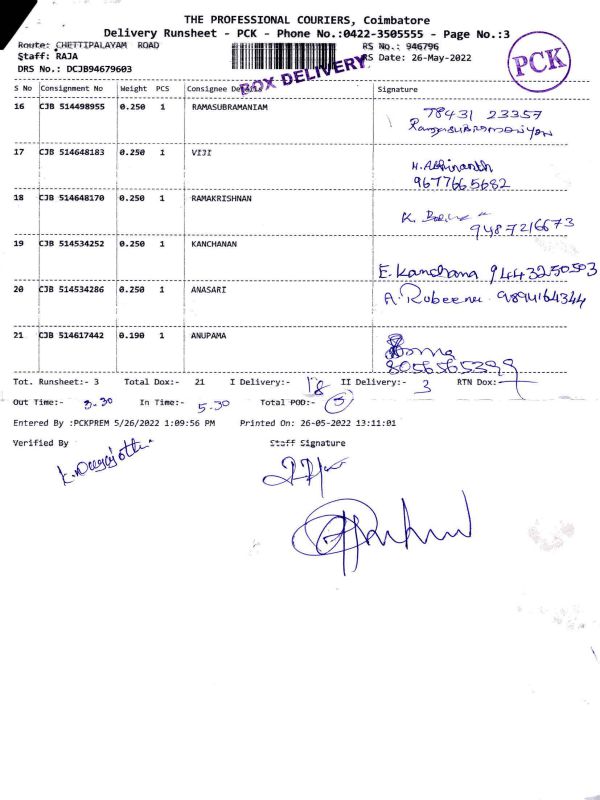 THE PROFESSIONAL COURIERS, Coimbatore
Delivery Runsheet - PCK - Phone No.:0422-3505555 - Page No.:3
Route: CHETTIPALAYAM ROAD RS No.: 946796
Staff: RAJA RS Date: 26-May-2022
DRS No.: DCJB94679603
BOX DELIVERY
PCK
S No Consignment No Weight PCS Consignee Details Signature
16 CJB 514498955 0.250 1 RAMASUBRAMANIAM 78431 23357
17 CJB 514648183 0.250 1 VIJI
9677665682
18 CJB 514648170 0.250 1 RAMAKRISHNAN K.
9487216673
19 CJB 514534252 0.250 1 KANCHANAN
E. Kanchana 9443250503
20 CJB 514534286 0.250 1 ANASARI A. Rubeena 9894164344
21 CJB 514617442 0.190 1 ANUPAMA
8056565399
Tot. Runsheet:- 3 Total Dox:- 21 I Delivery:- 18 II Delivery:- 3 RTN Dox:-
Out Time:- 3.30 In Time:- 5.30 Total POD:- 3
Entered By :PCKPREM 5/26/2022 1:09:56 PM Printed On: 26-05-2022 13:11:01
Verified By Staff Signature